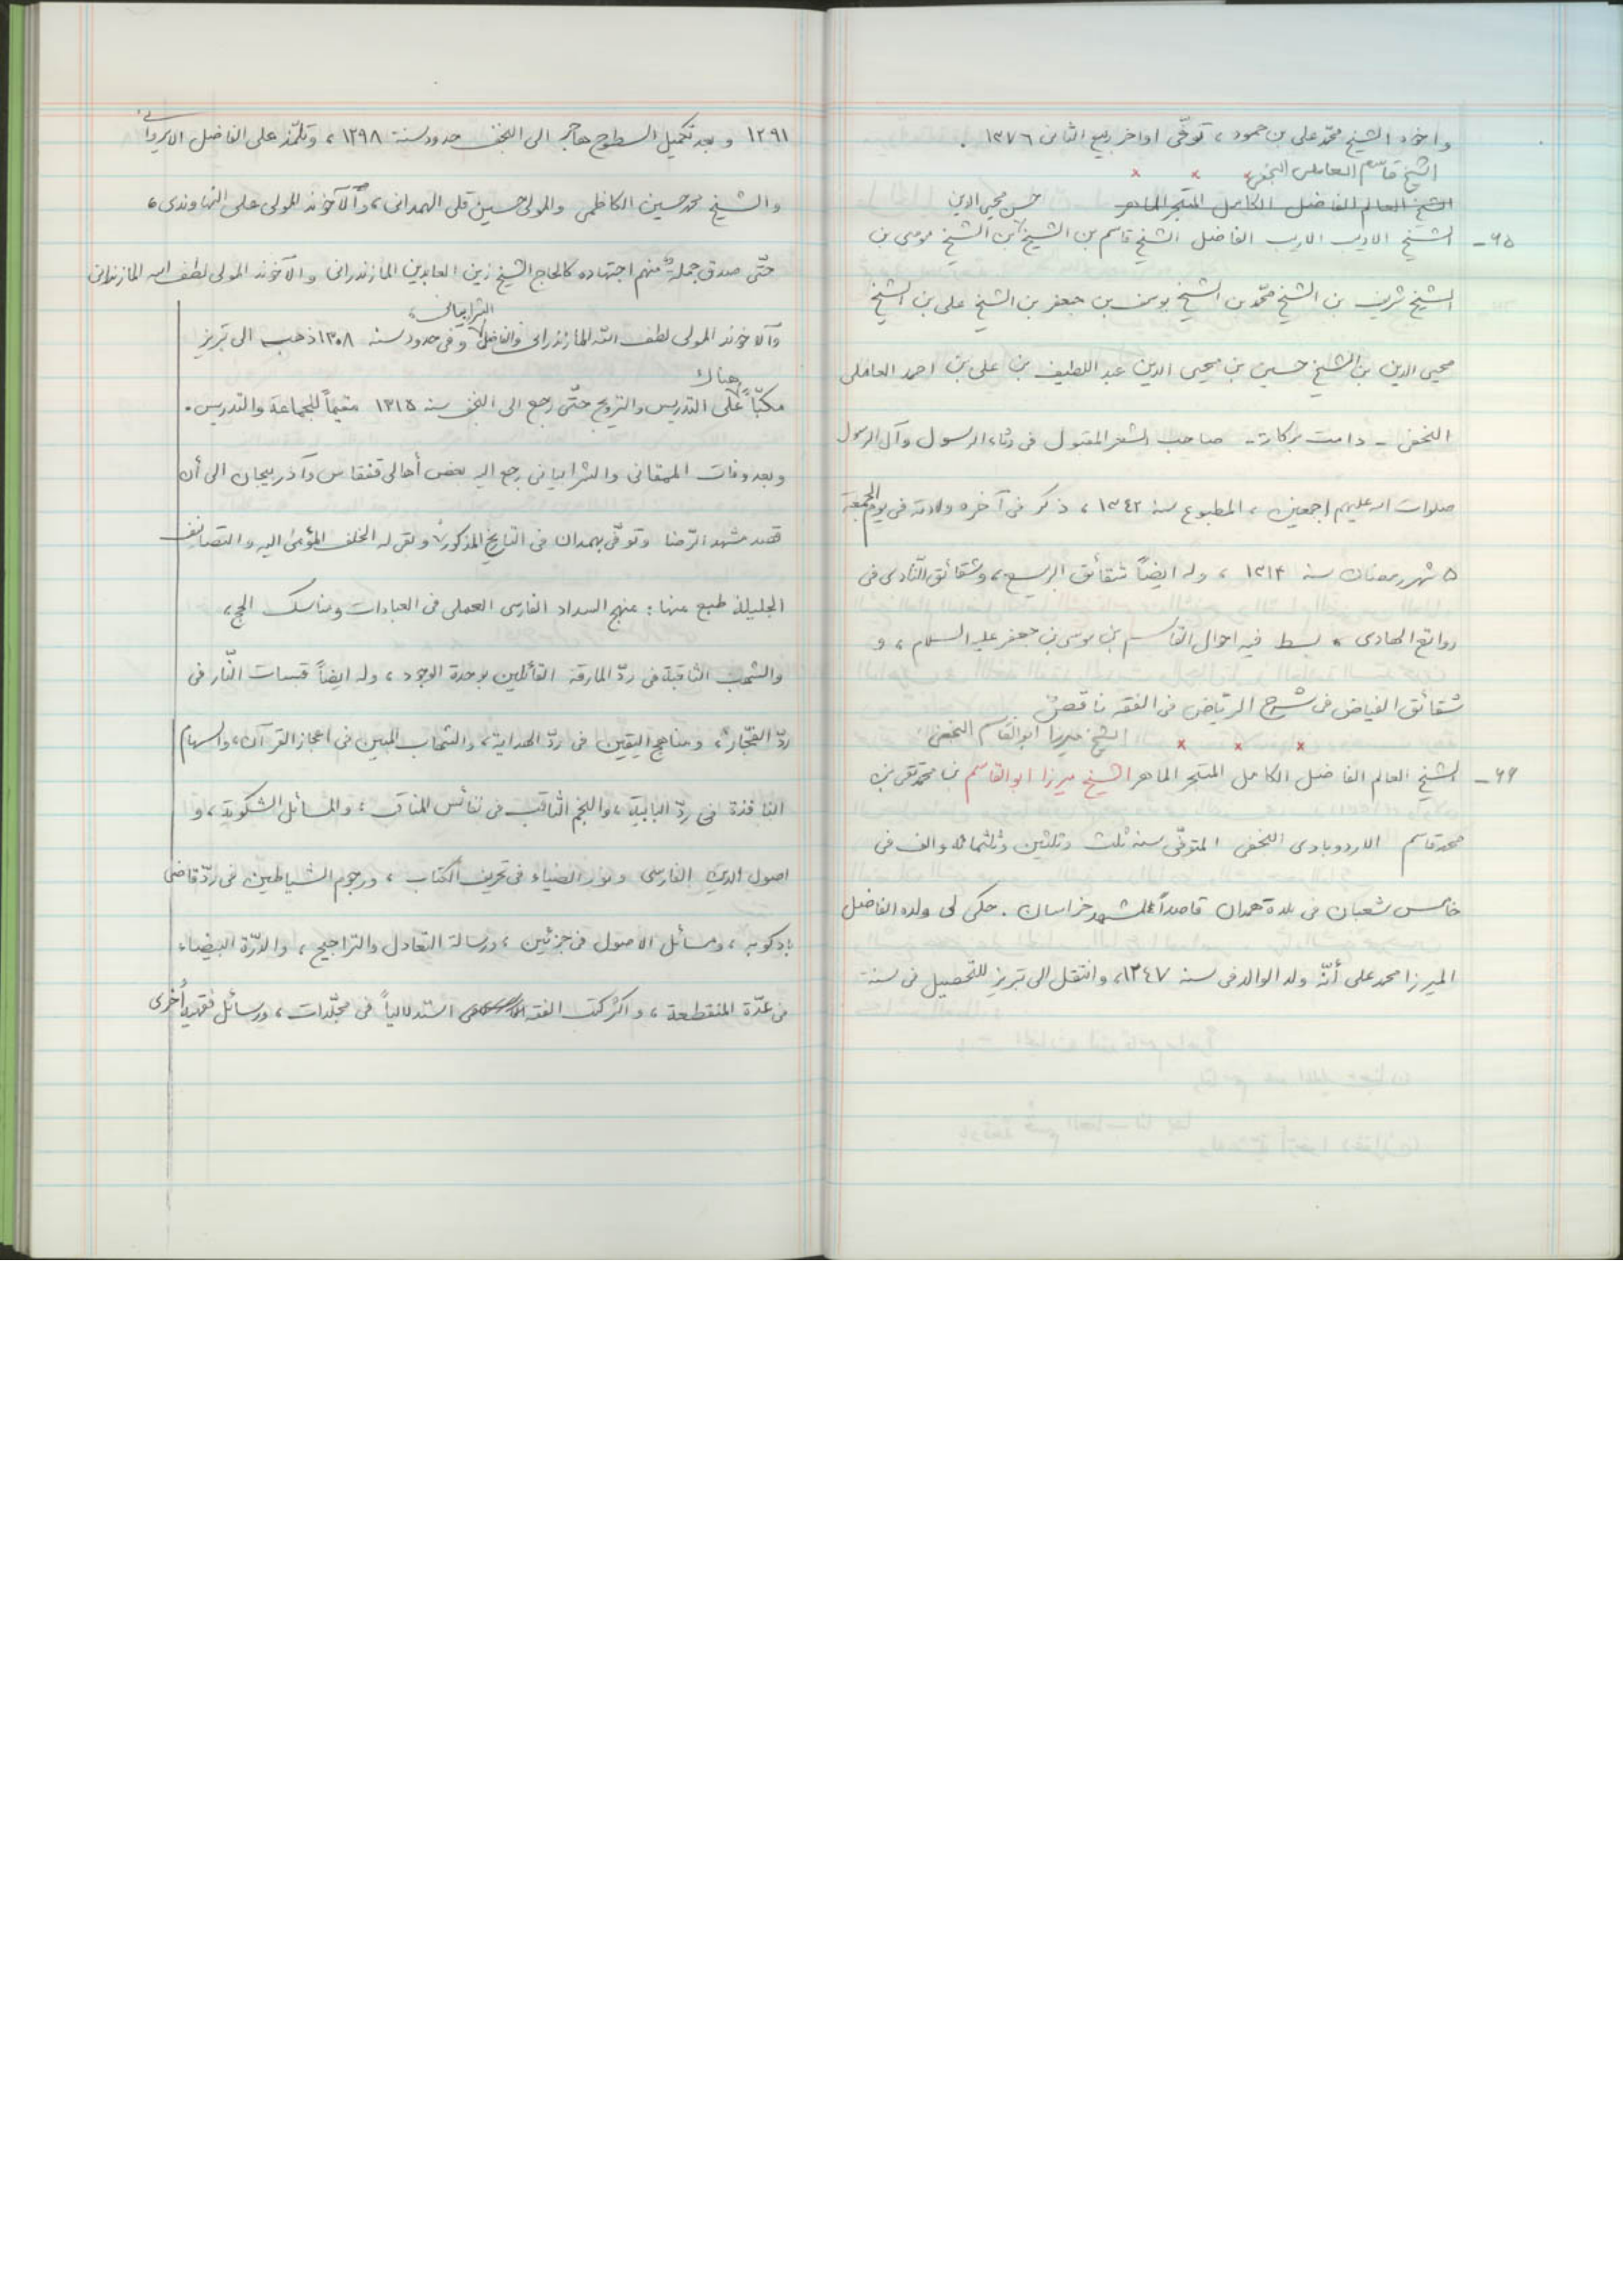 واخوه الشيخ محمّد على بن حمود ، توفّى اواخر ربيع الثانى ١٣٧٦ .
الشيخ قاسم العاملى النجفى × × ×
الشيخ العالم الفاضل الكامل المتبحر الماهر حسن محيى الدين
٦٥ـ الشيخ الاديب الاريب الفاضل الشيخ قاسم بن الشيخ بن الشيخ موسى بن
الشيخ شريف بن الشيخ محمّد بن الشيخ يوسف بن جعفر بن الشيخ على بن الشيخ
محيى الدين بن الشيخ حسين بن محيى الدين عبد اللطيف بن على بن احمد العاملى
النجفى - دامت بركاته - صاحب الشعر المقبول فى رثاء الرسول وآل الرسول
صلوات اله عليهم اجمعين ، المطبوع سنه ١٣٤٢ ، ذكر فى آخره ولادته فى يوم الجمعة
٥ شهر رمضان سنه ١٣١٤ ، وله ايضاً شقائق الربيع ، وشقائق النّادى فى
روائع الهادى ، بسط فيه احوال القاسم بن موسى بن جعفر عليه السلام ، و
شقائق الفياض فى شرح الرياض فى الفقه ناقصٌ
الشيخ ميرزا ابوالقاسم النجفى × × ×
٦٦ـ الشيخ العالم الفاضل الكامل المتبحر الماهر الشيخ ميرزا ابوالقاسم بن محمد تقى بن
محمد قاسم الاردوبادى النجفى المتوفّى سنه ثلث وثلثين وثلثمائة والف فى
خامس شعبان فى بلدة همدان قاصداً لمشهد خراسان . حكى لى ولده الفاضل
الميرزا محمد على أنّه ولد الوالد فى سنه ١٢٤٧ ، وانتقل الى تبريز للتحصيل فى سنة
١٢٩١ و بعد تكميل السطوح هاجر الى النجف حدود سنة ١٢٩٨ ، وتلمّذ على الفاضل الايروانى
والشيخ محمد حسين الكاظمى والمولى حسين قلى الهمدانى ، والآخوند المولى على النهاوندى ،
حتّى صدق جملة منهم اجتهاده كالحاج الشيخ زين العابدين المازندرانى والآخوند المولى لطف اله المازندرانى
الشرابيانى ،
والآخوند المولى لطف الله المازندرانى والفاضل وفى حدود سنه ١٣٠٨ ذهب الى تبريز
هناك
مكبّاً على التدريس والترويج حتّى رجع الى النجف سنه ١٣١٥ مقيماً للجماعة والتدريس .
وبعد وفات الممقانى والشرابيانى رجع اليه بعض أهالى قفقاس وآذربيجان الى أن
قصد مشهد الرّضا وتوفّى بهمدان فى التاريخ المذكور ، وله الخلف المؤمئ اليه والتصانيف
الجليلة طبع منها : منهج السداد الفارسى العملى فى العبادات ومناسك الحج ،
والشهب الثاقبة فى ردّ المارقة القائلين بوحدة الوجود ، وله ايضاً قبسات النّار فى
ردّ الفجّار ، ومناهج اليقين فى ردّ الهداية ، والشهاب المبين فى اعجاز القرآن ، والسهام
النافذة فى ردّ البابية ، والنجم الثاقب فى نفائس المناقب ، والمسائل الشكوية ، و
اصول الدين الفارسى ونور الضياء فى تحريف الكتاب ، ورجوم الشياطين فى ردّ قاضى
بادكوبه ، ومسائل الاصول فى جزئين ، ورسالة التعادل والتراجيح ، والدّرّة البيضاء
فى عدّة المنقطعة ، واكثر كتب الفقه استدلالياً فى مجلّدات ، ورسائل فقهية أُخرى